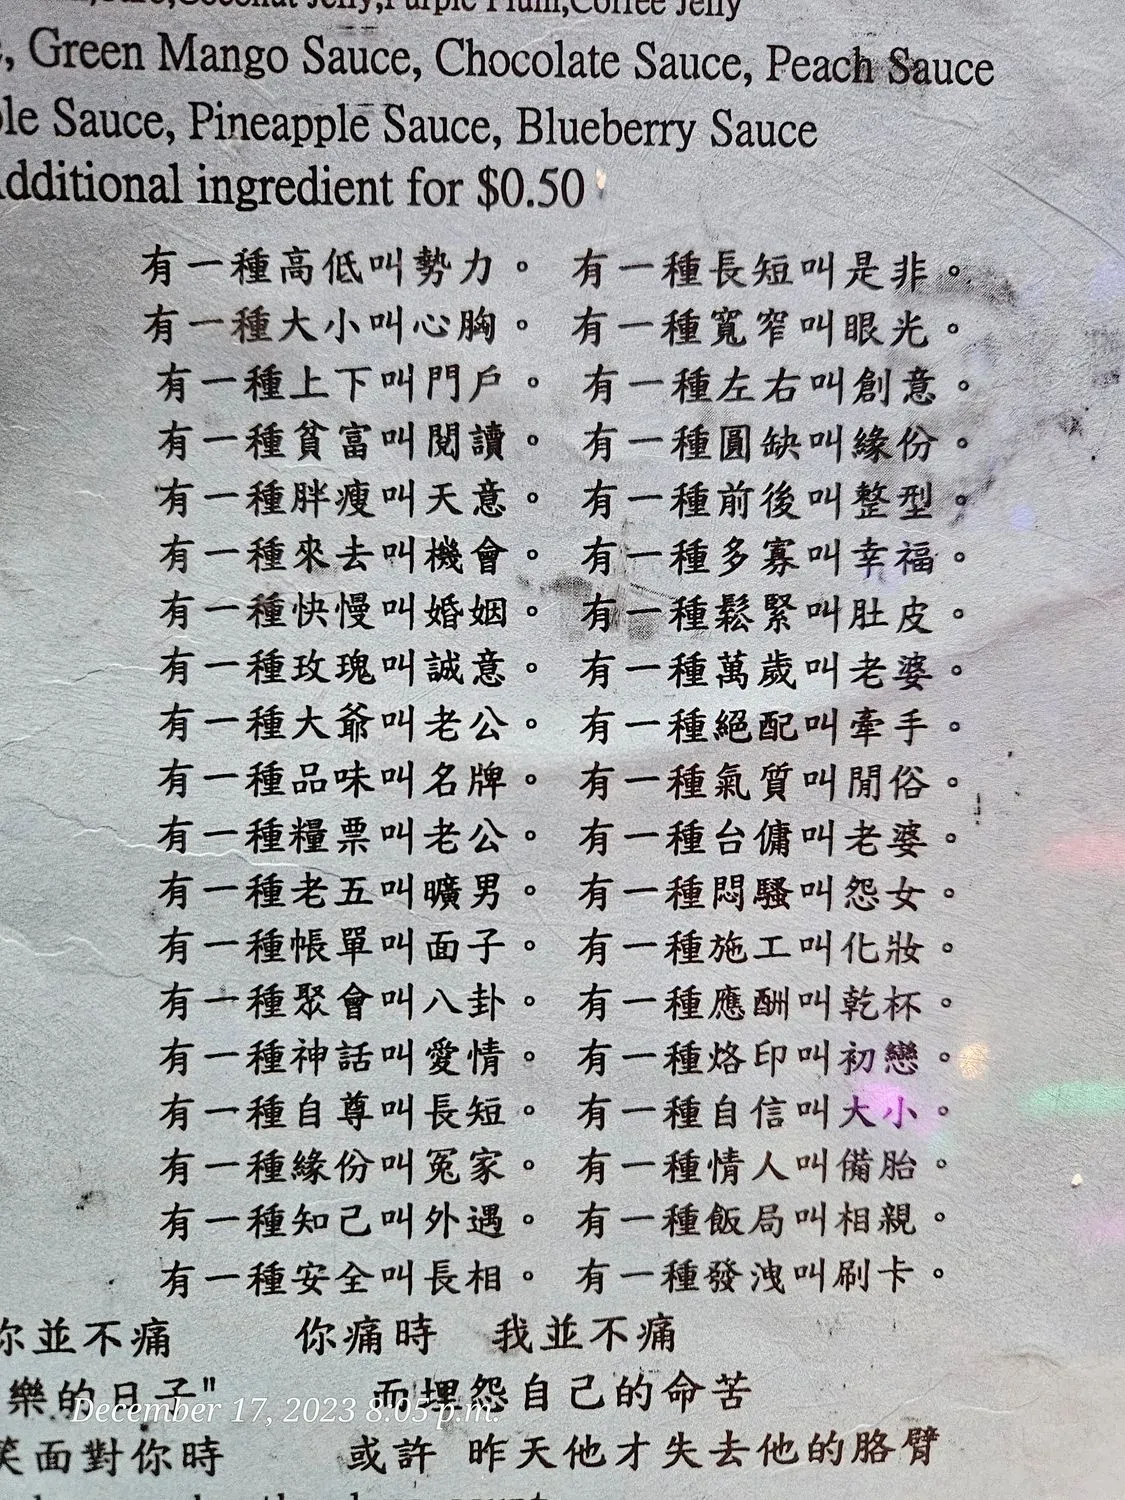 Coconut Jelly,Purple Plum,Coffee Jelly
, Green Mango Sauce, Chocolate Sauce, Peach Sauce
ple Sauce, Pineapple Sauce, Blueberry Sauce
dditional ingredient for $0.50
有一種高低叫勢力。 有一種長短叫是非。
有一種大小叫心胸。 有一種寬窄叫眼光。
有一種上下叫門戶。 有一種左右叫創意。
有一種貧富叫閱讀。 有一種圓缺叫緣份。
有一種胖瘦叫天意。 有一種前後叫整型。
有一種來去叫機會。 有一種多寡叫幸福。
有一種快慢叫婚姻。 有一種鬆緊叫肚皮。
有一種玫瑰叫誠意。 有一種萬歲叫老婆。
有一種大爺叫老公。 有一種絕配叫牽手。
有一種品味叫名牌。 有一種氣質叫閒俗。
有一種糧票叫老公。 有一種台傭叫老婆。
有一種老五叫曠男。 有一種悶騷叫怨女。
有一種帳單叫面子。 有一種施工叫化妝。
有一種聚會叫八卦。 有一種應酬叫乾杯。
有一種神話叫愛情。 有一種烙印叫初戀。
有一種自尊叫長短。 有一種自信叫大小。
有一種緣份叫冤家。 有一種情人叫備胎。
有一種知己叫外遇。 有一種飯局叫相親。
有一種安全叫長相。 有一種發洩叫刷卡。
你並不痛 你痛時 我並不痛
樂的日子" 而埋怨自己的命苦
December 17, 2023 8:05 p.m.
笑面對你時 或許 昨天他才失去他的胳臂